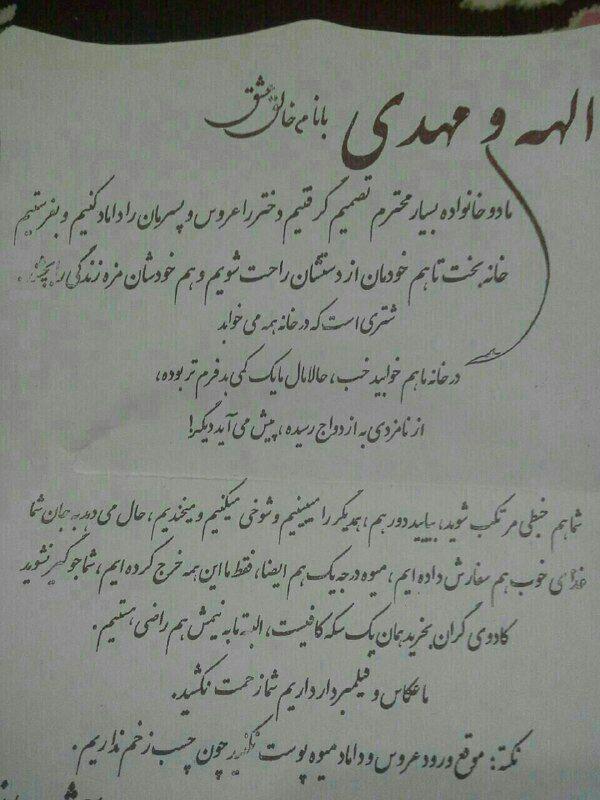 الهه و مهدی با نا می خالق عشق
ما دو خانواده بسیار محترم تصمیم گرفتیم دختر را عروس و پسرمان را داماد کنیم و بفرستیم
خانه بخت تا هم خودمان از دستشان راحت شویم و هم خودشان مزه زندگی را بچشند.
شتری است که در خانه همه می خوابد
در خانه ما هم خوابید خب، حالا مال ما یک کمی بد فرم تر بوده،
از نامزدی به ازدواج رسیده، پیش می آید دیگر!
شما هم خبطی مرتکب شوید، بیایید دور هم، همدیگر را میبینیم و شوخی میکنیم و میخندیم، حال می دهد بجان شما
غذای خوب هم سفارش داده ایم، میوه درجه یک هم ایضا، فقط ما این همه خرج کرده ایم، شما جو گیر نشوید
کادوی گران بخرید همان یک سکه کافیست، البته ما به نیمش هم راضی هستیم.
ما عکاس و فیلمبردار داریم شما زحمت نکشید.
نکته: موقع ورود عروس و داماد میوه پوست نگیرید چون چسب زخم نداریم.